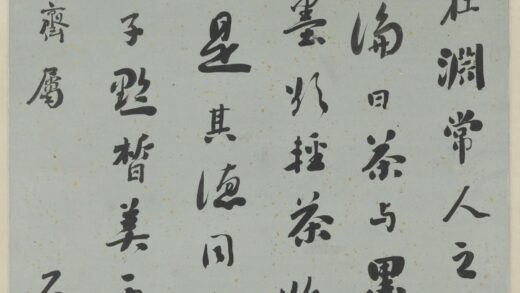 淵常人之
論曰茶与墨
墨欲輕茶
是其德同
子黔皙美
齋屬